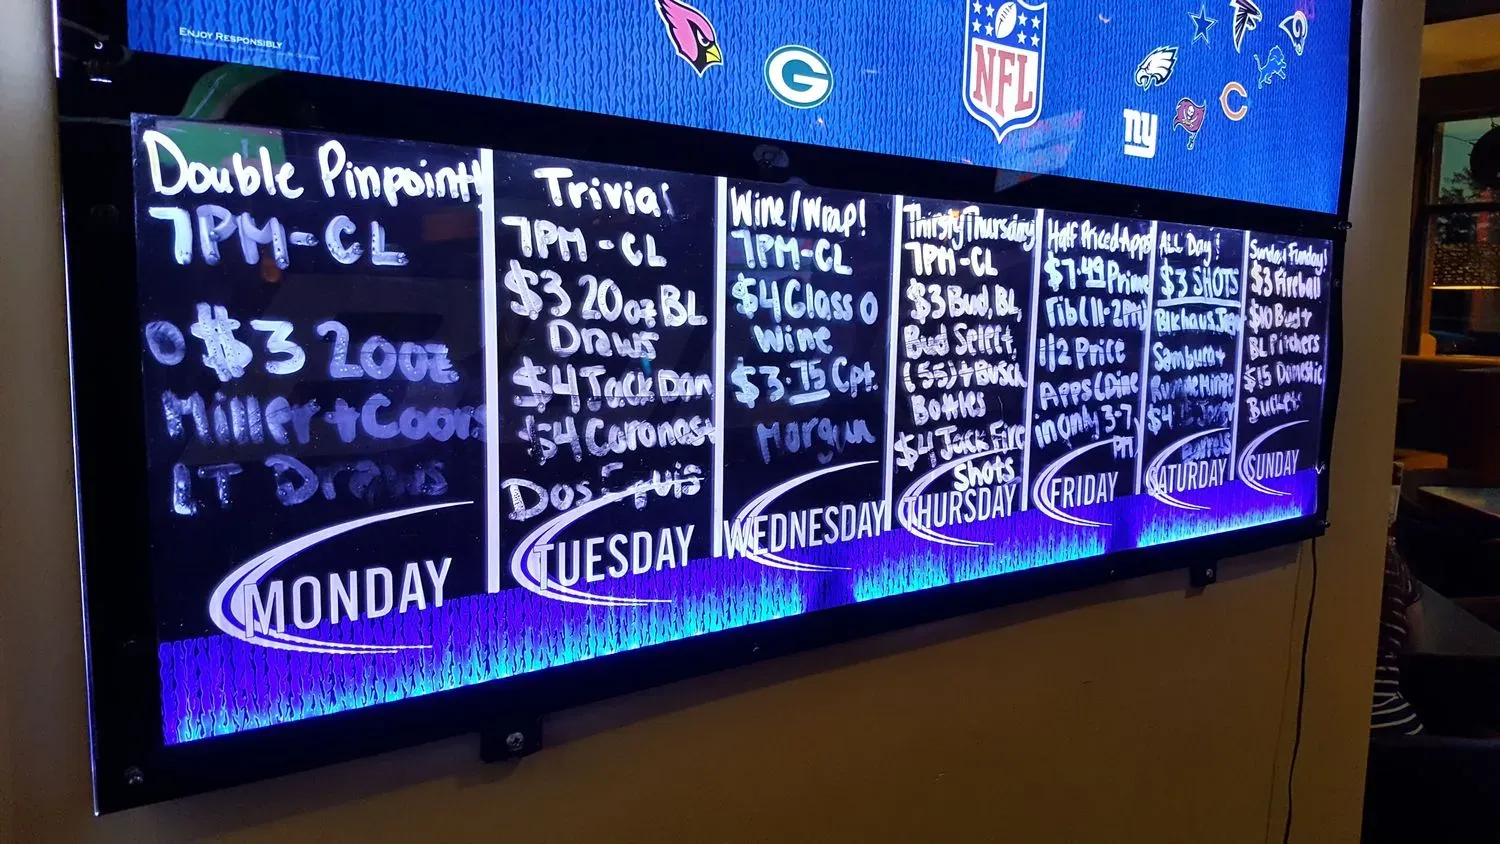 ENJOY RESPONSIBLY
G
NFL
ny
C
Double Pinpoint!
7PM-CL
$3 20oz
Miller + Coors
LT Draws
MONDAY
Trivia!
7PM-CL
$3 20oz BL
Draws
$4 Jack Dan
$4 Coronas+
Dos Equis
TUESDAY
Wine/Wrap!
7PM-CL
$4 Glass O
Wine
$3.75 Cpt.
Morgan
WEDNESDAY
Thirsty Thursday
7PM-CL
$3 Bud, BL,
Bud Select,
(55) + Busch
Bottles
$4 Jack Fire
Shots
THURSDAY
Half Priced Apps
$7.49 Prime
rib (11-2PM)
1/2 Price
Apps (Dine
in only 3-7
PM)
FRIDAY
All Day!
$3 SHOTS
Blkhaus,
Sambuca+
Rumple Minze
$4
Barrels
SATURDAY
Sunday Funday!
$3 Fireball
$10 Bud+
BL Pitchers
$15 Domestic
Buckets
SUNDAY